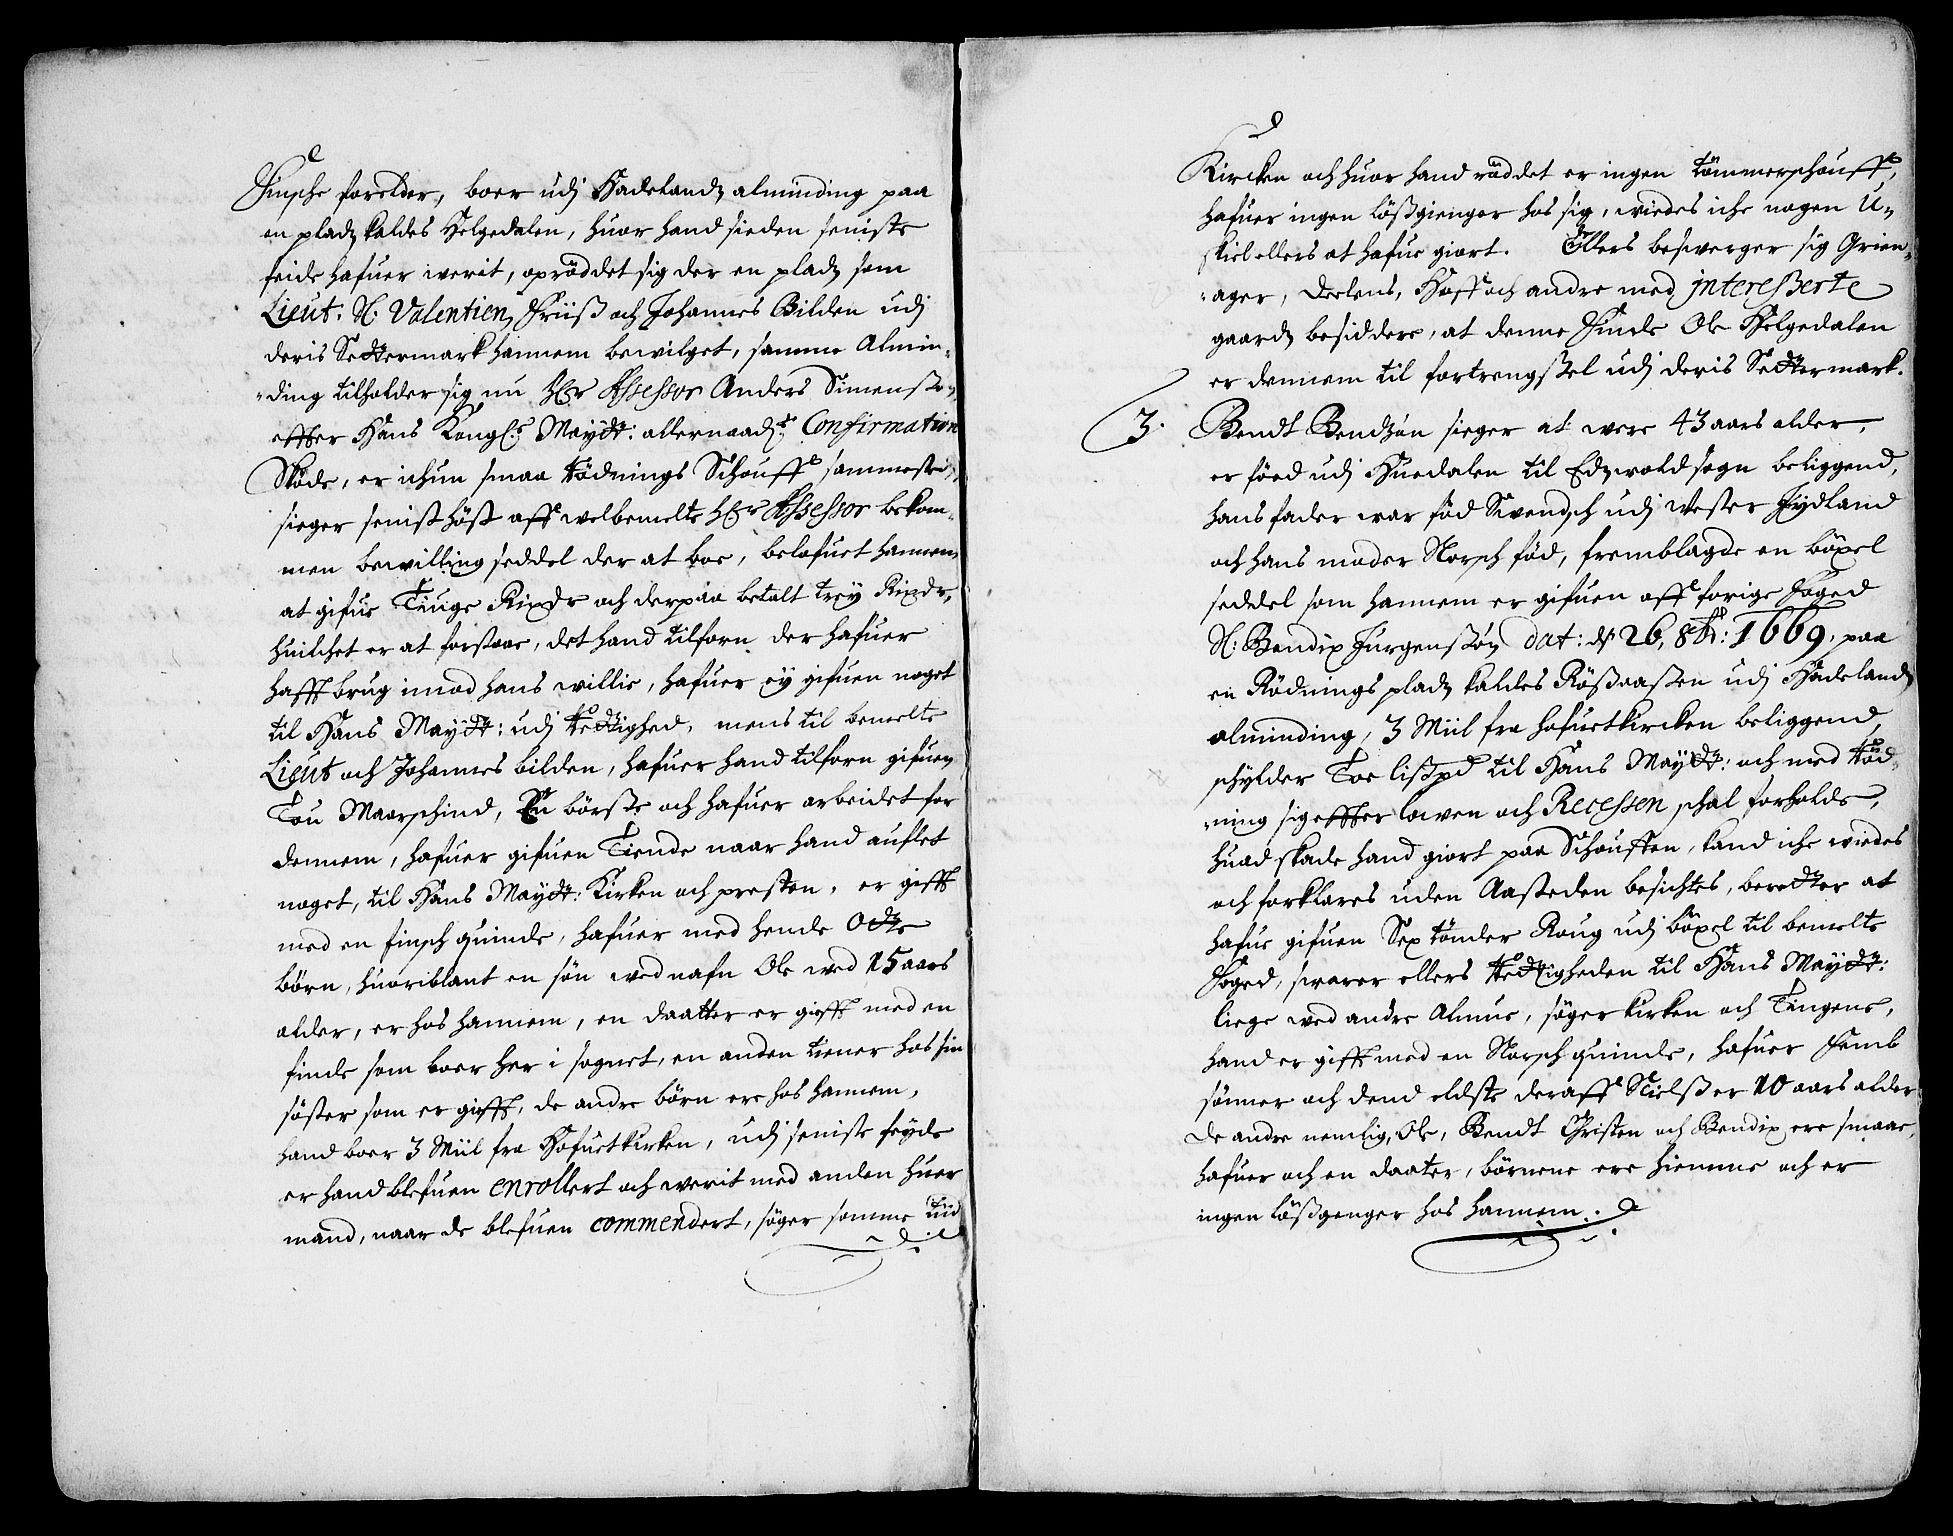 Finsche forelder, boer udj Hadelandz alminding paa
en pladz kaldes Helgedalen, huor hand sieden seniste
feide hafuer werit, opröddet sig der en pladz som
Lieut. H. Valentien Friiß och Johannes Bilden udj
deris Settermark hannem bewilget, samme Almin-
-ding tilholder sig nu hEr Assessor Anders Simenß
effter Hans Kongl: Maytt: allernaadst: Confirmation
Skøde, er ichun smaa Rödnings Schouff sammested,
sieger senist höst aff welbemelte hEr Assessor bekom-
men bewilling seddel der at boe, belofuet hannem
at gifue Tiuge Rixdr och derpaa betalt trey Rixdr,
huilchet er at forstaae, det hand tilforn der hafuer
hafft brug imod hans willie, hafuer ey gifuen noget
til Hans Maytt: udj Rettighed, mens til bemelte
Lieut och Johannes bilden, hafuer hand tilforn gifuen
Tou Maarschind, En börße och hafuer arbeidet for
dennem, hafuer gifuen Tiende naar hand auflet
noget, til Hans Maytt: Kirken och presten, er gifft
med en finsch quinde, hafuer med hende Otte
börn, huoriblant en sön wed nafn Ole wed 15 aars
alder, er hos hannem, en daatter er gifft med en
finde som boer her i sognet, en anden tiener hos sin
söster som er gifft, de andre börn ere hos hannem,
hand boer 3 Miil fra Hofuetkirken, udj seniste feyde
er hand blefuen enrollert och werit med anden huer
mand, naar de blefuen commendert, söger somme tiid
Kircken och huor hand röddet er ingen tömmerschouff,
hafuer ingen lößgienger hos sig, wiedes iche nogen U-
skiel ellers at hafue giort. Ellers beswerger sig Grien-
-ager, Deelens, Hoff och andre med interesserte
gaardz besiddere, at denne Finde Ole Helgedalen
er dennem til fortrengßel udj deris Settermark.
3. Bendt Bendzøn sieger at were 43 aars alder,
er föed udj Huedalen til Edzwold sogn beliggend,
hans fader war föd Swendsch udj Wester Jydland
och hans moder Norsch föd, fremblagde en böxel
seddel som hannem er gifuen aff forige Foged
H: Bendix Jurgensøn dat: d 26, 8br: 1669, paa
en Rödnings pladz kaldes Rößaasen udj Hadelandz
alminding, 3 Miil fra hofuetkircken beliggend,
schylder Toe lißpd til Hans Maytt: och med Röd-
-ning sig effter lowen och Recessen schal forholde,
huad skade hand giort paa Schouffen, kand iche wiedes
och forklares uden Aasteden besichtes, beretter at
hafue gifuen Sex tönder Roug udj böxel til bemelte
Foged, swarer ellers Rettigheden til Hans Maytt:
liege wed andre Almue, söger kirken och Tingene,
hand er gifft med en Norsch quinde, hafuer Femb
sönner och dend eldste deraff Nielß er 10 aars alder
de andre nemlig, Ole, Bendt Christen och Bendix ere smaae,
hafuer och en daater, börnene ere hiemme och er
ingen lößgenger hos hannem.